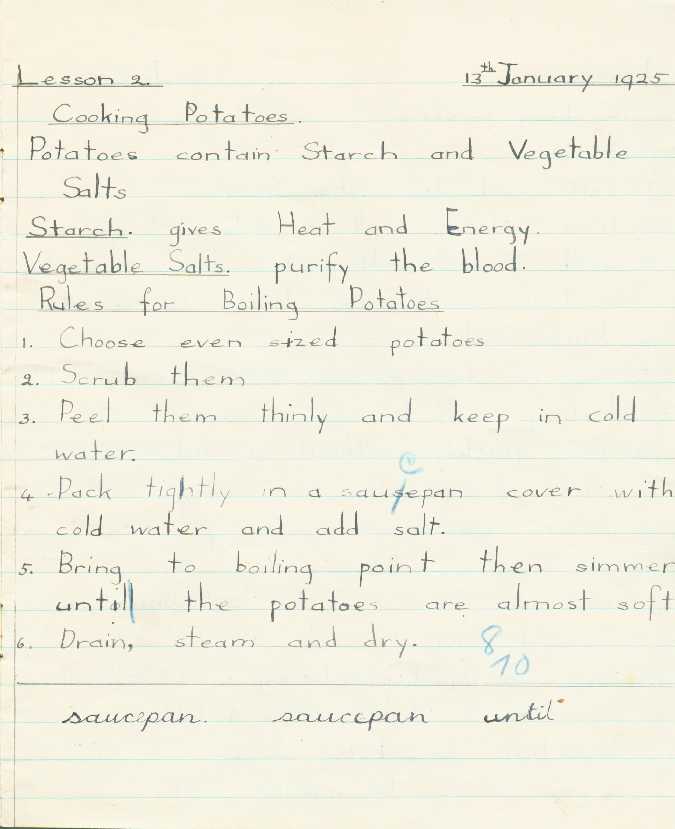 Lesson 2. 13th January 1925
Cooking Potatoes.
Potatoes contain Starch and Vegetable
Salts
Starch. gives Heat and Energy.
Vegetable Salts. purify the blood.
Rules for Boiling Potatoes
1. Choose even sized potatoes
2. Scrub them
3. Peel them thinly and keep in cold
water.
c
4. Pack tightly in a sausepan cover with
cold water and add salt.
5. Bring to boiling point then simmer
untill the potatoes are almost soft
6. Drain, steam and dry. 8/10
saucepan. saucepan until